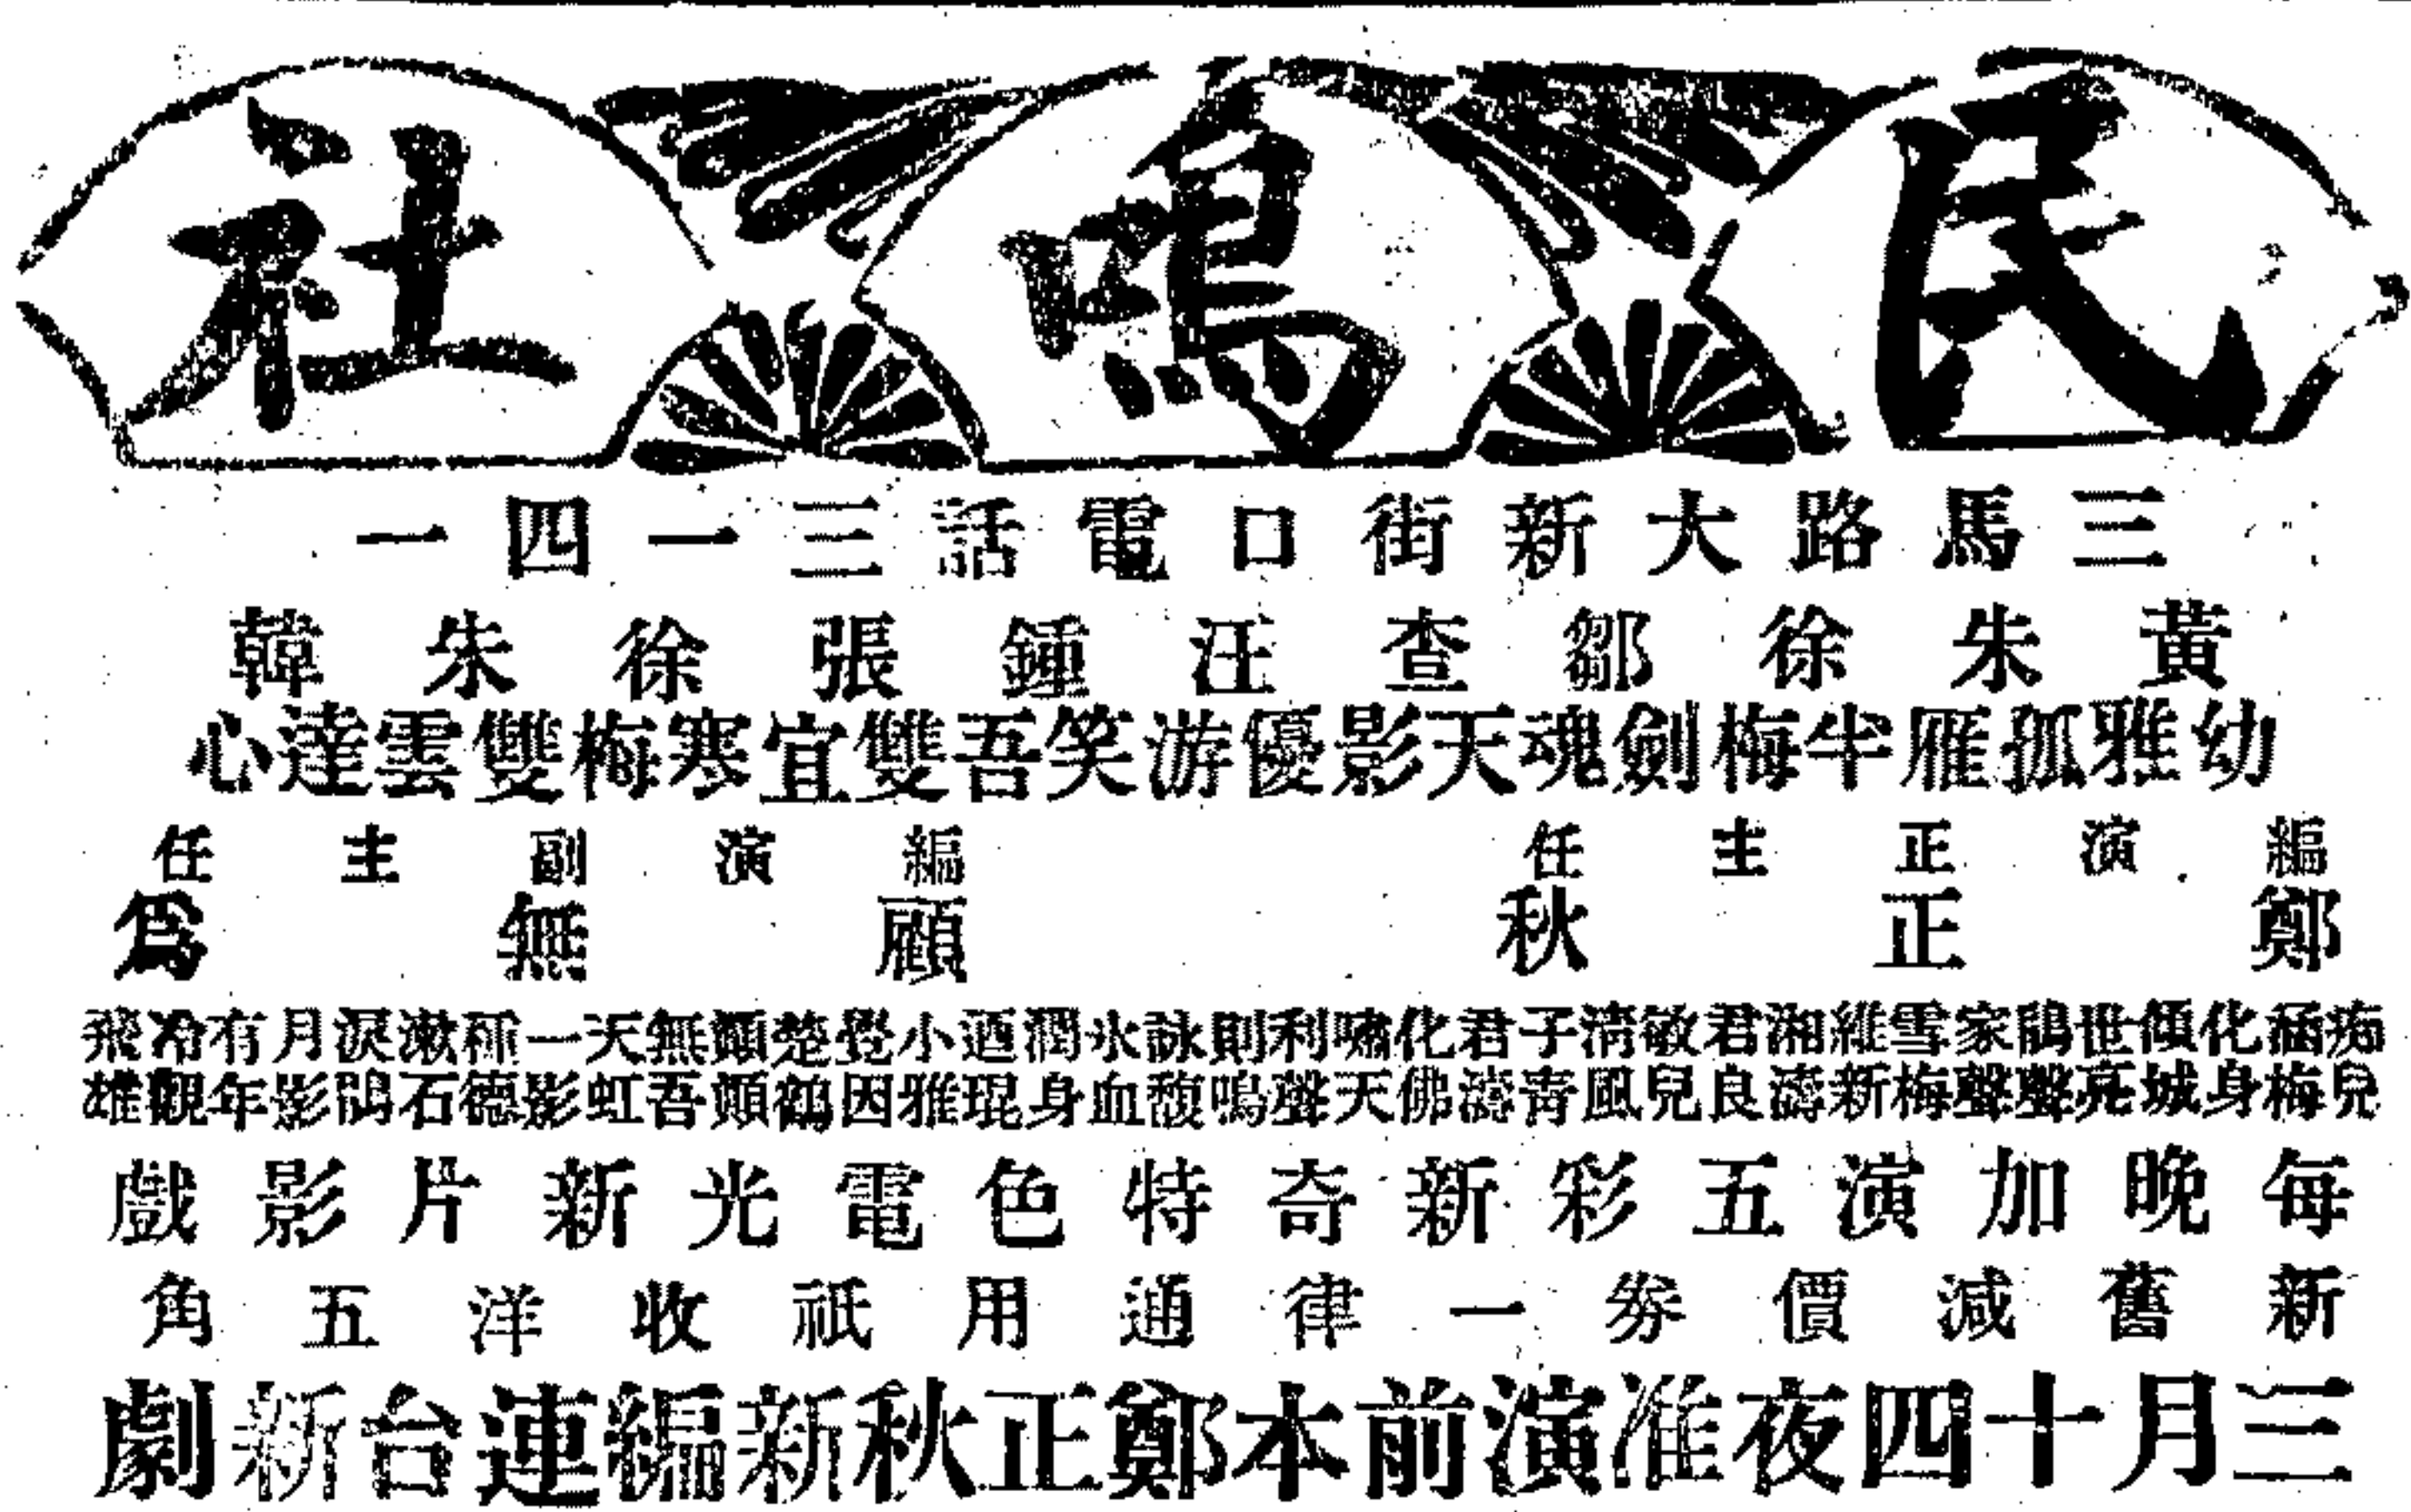 民鳴社
三馬路大新街口電話三一四一
黃朱徐鄒查汪鍾張徐朱韓
幼雅孤雁半梅劍魂天影優游笑吾雙宜寒梅雙雲達心
編演正主任 編演副主任
鄭正秋 顧無爲
痴菡化傾世鵑家雪維湘君敏清子君化嘯利則詠氷潤迺小覺楚顚無天一種漱淚月有冷飛
兒梅身城亮聲聲梅新濤良兒風靑濤佛天聲鳴馥血身琨雅因鶴顚吾虹影德石鵑影年觀雄
每晚加演五彩新奇特色電光新片影戲
新舊減價劵一律通用祇收洋五角
三月十四夜准演前本鄭正秋新編連台新劇